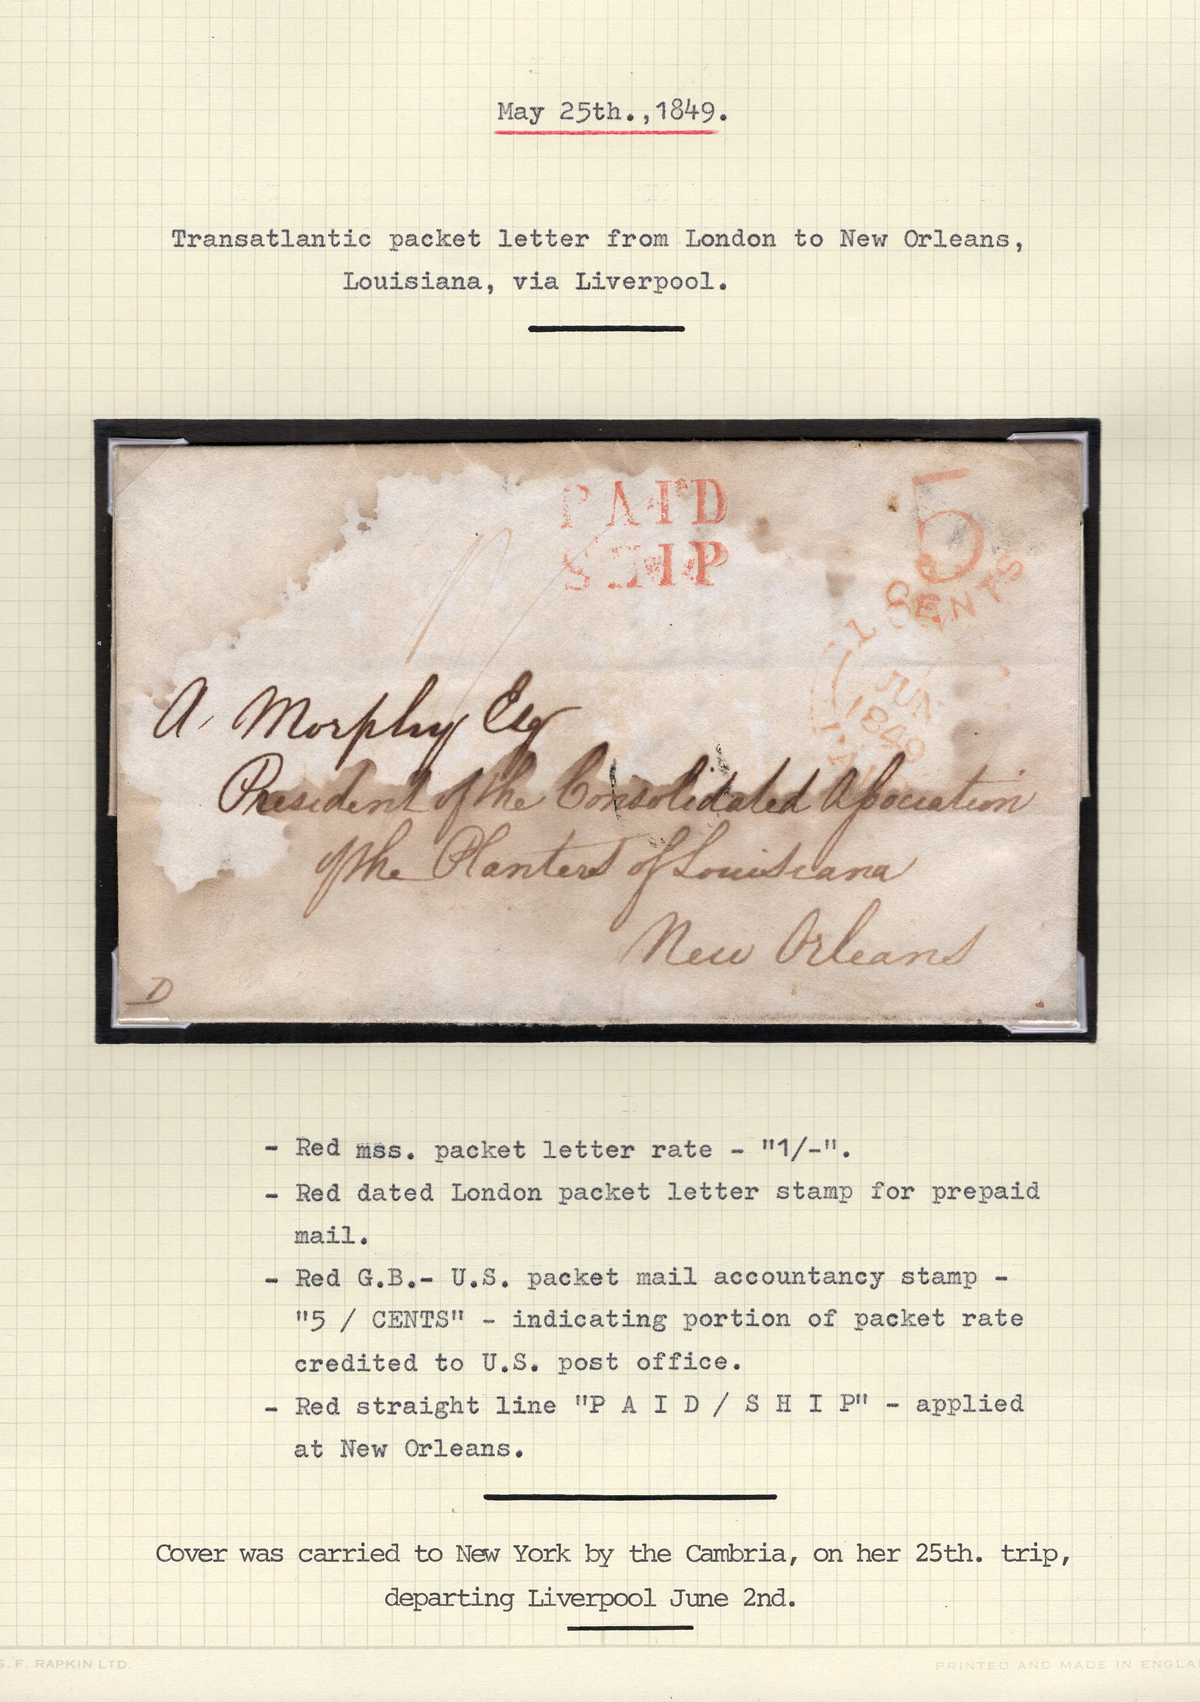 May 25th.,1849.
Transatlantic packet letter from London to New Orleans,
Louisiana, via Liverpool.
PAID
SHIP
5
CENTS
JUN
1849
A. Morphy Esq
President of the Consolidated Association
of the Planters of Louisiana
New Orleans
D
- Red mss. packet letter rate - "1/-".
- Red dated London packet letter stamp for prepaid
mail.
- Red G.B.- U.S. packet mail accountancy stamp -
"5 / CENTS" - indicating portion of packet rate
credited to U.S. post office.
- Red straight line "P A I D / S H I P" - applied
at New Orleans.
Cover was carried to New York by the Cambria, on her 25th. trip,
departing Liverpool June 2nd.
S. F. RAPKIN LTD.
PRINTED AND MADE IN ENGLA